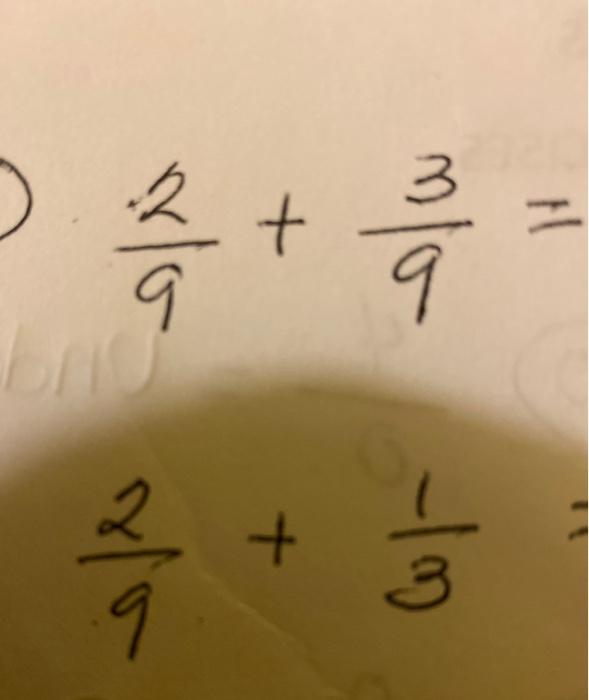 2/9 + 3/9 =
2/9 + 1/3 =